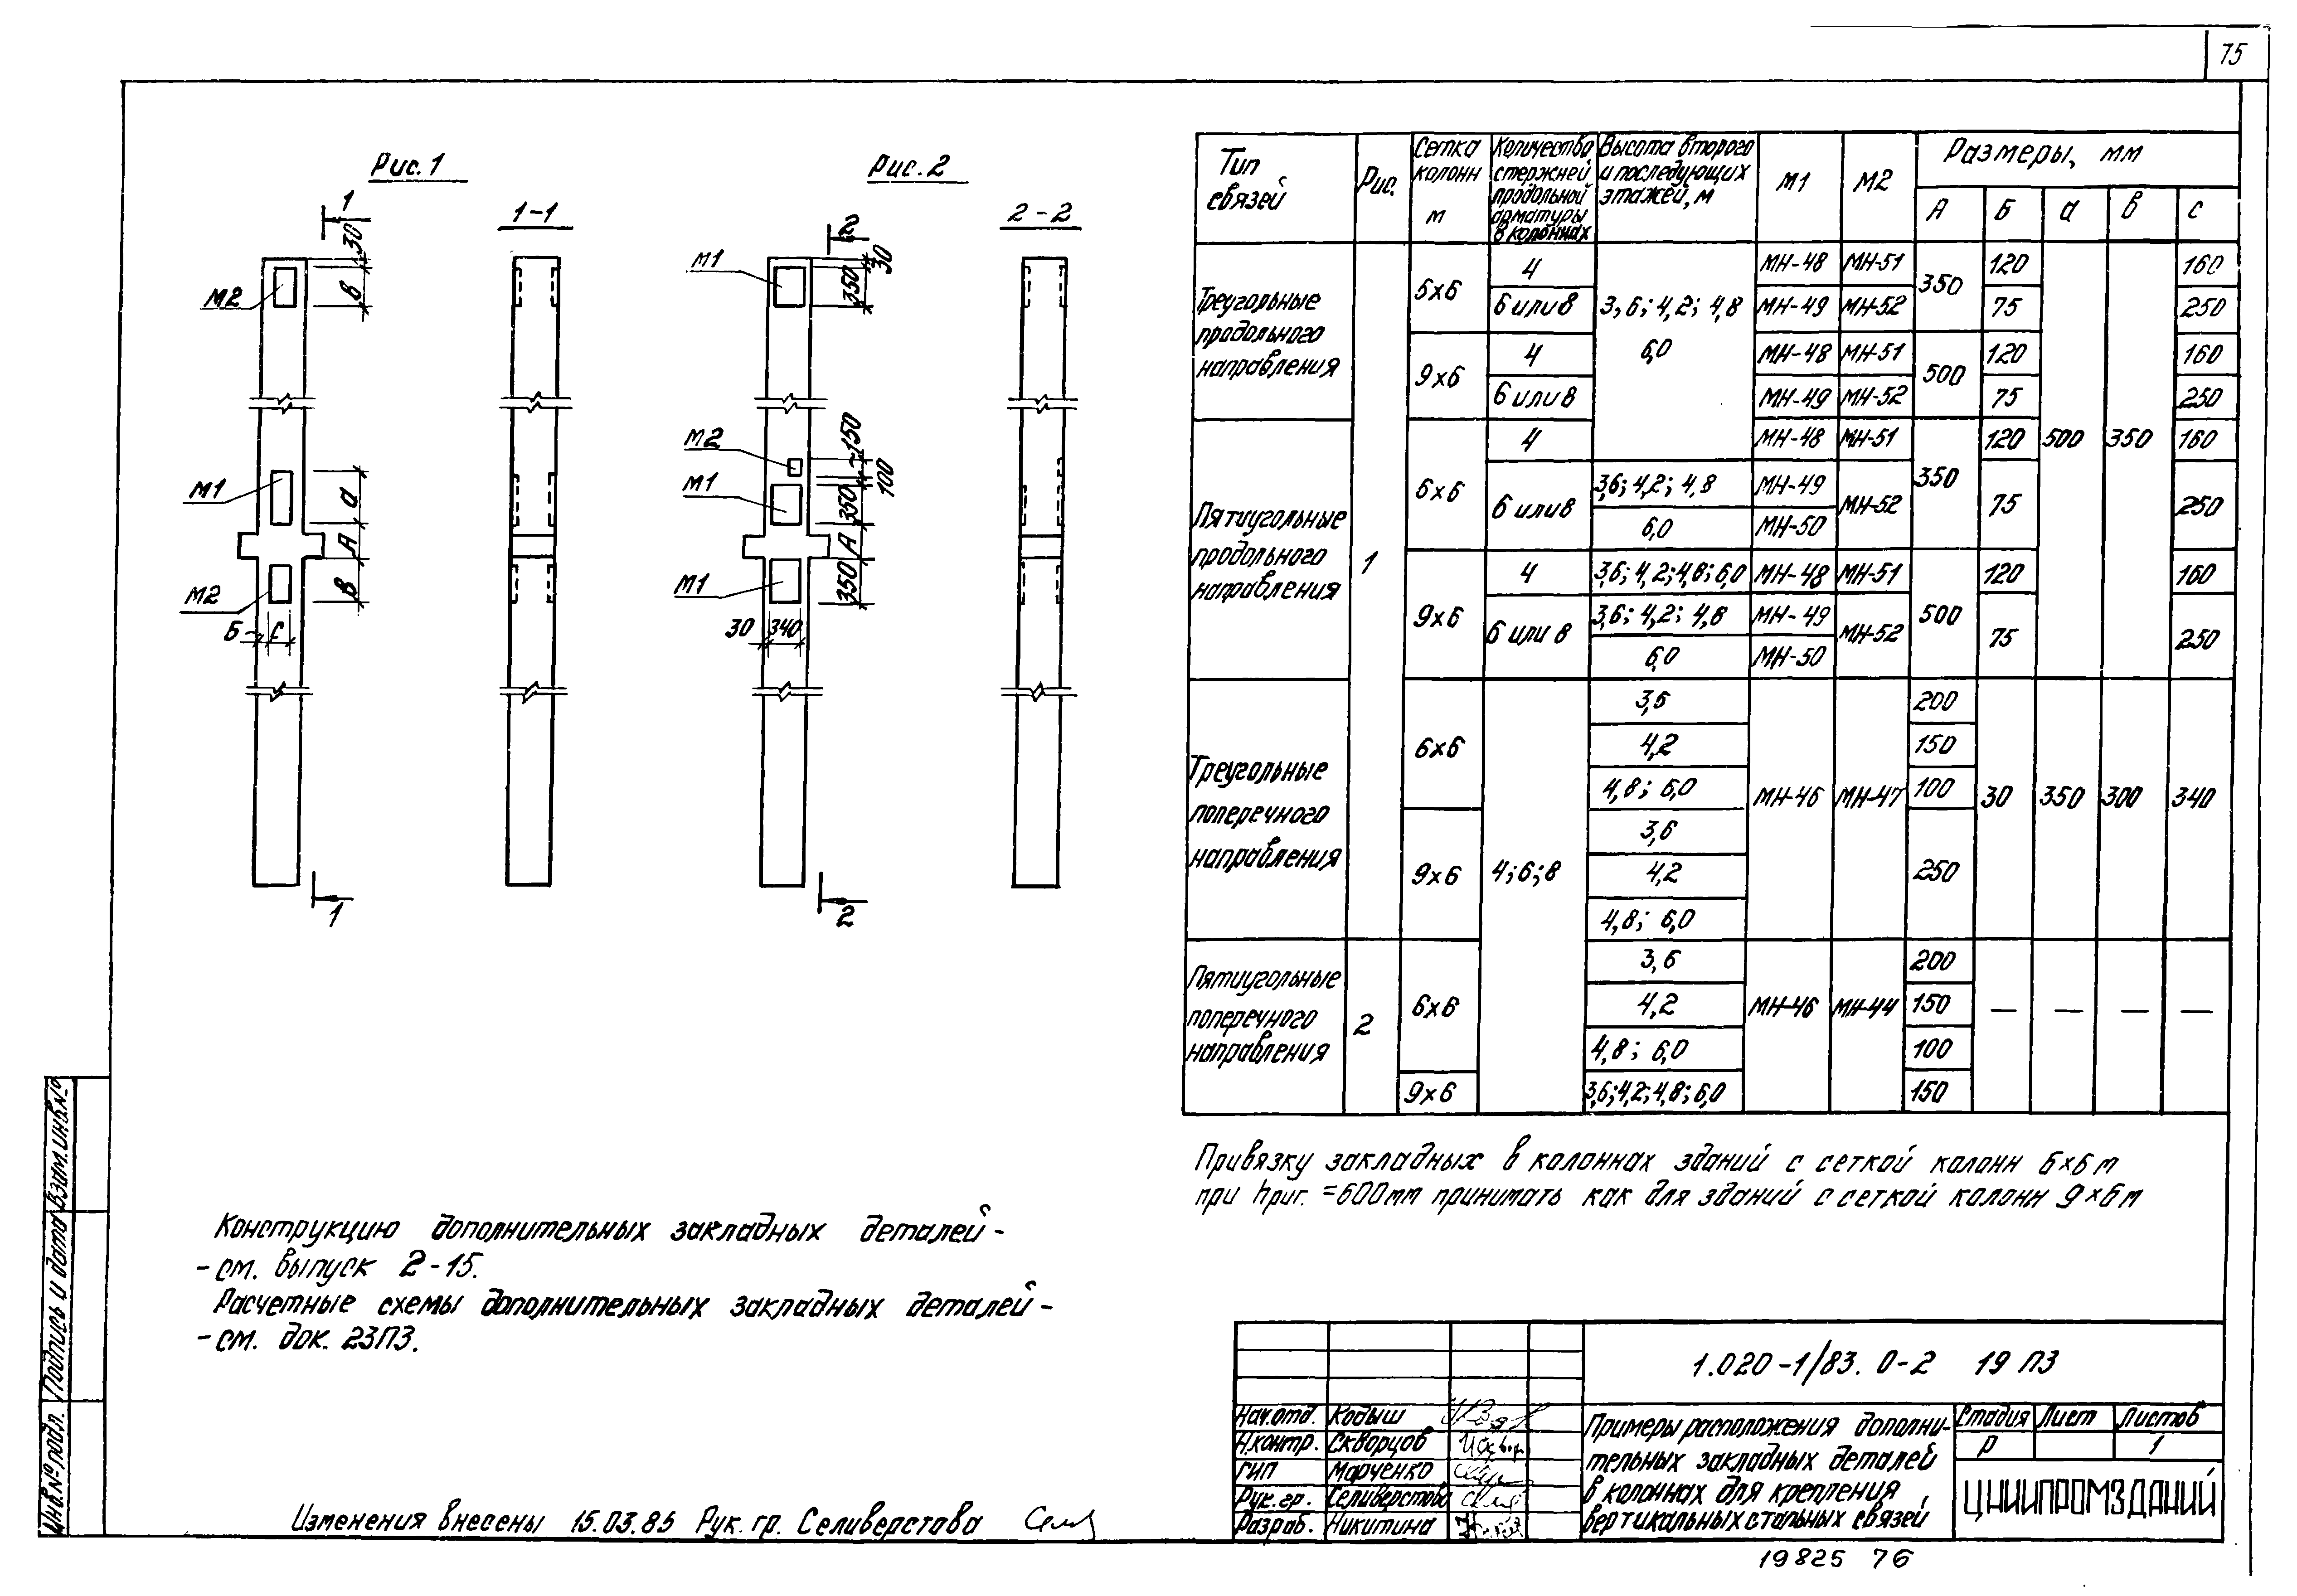 75
Рис. 1
1
1-1
30
М2
в
М1
а
А
М2
в
Б
с
1
Рис. 2
2
2-2
М1
30
350
М2
150
100
М1
350
А
М1
350
30
340
2
Тип связей
Рис.
Сетка колонн м
Количество стержней продольной арматуры в колоннах
Высота второго и последующих этажей, м
М1
М2
Размеры, мм
А Б а в с
Треугольные продольного направления
1
6х6
4
3,6; 4,2; 4,8
6,0
МН-48 МН-51 350 120 500 350 160
6 или 8 МН-49 МН-52 75 250
9х6 4 МН-48 МН-51 500 120 160
6 или 8 МН-49 МН-52 75 250
Пятиугольные продольного направления
6х6 4 МН-48 МН-51 350 120 160
6 или 8 3,6; 4,2; 4,8 МН-49 МН-52 75 250
6,0 МН-50
9х6 4 3,6; 4,2; 4,8; 6,0 МН-48 МН-51 500 120 160
6 или 8 3,6; 4,2; 4,8 МН-49 МН-52 75 250
6,0 МН-50
Треугольные поперечного направления
6х6 4;6;8 3,6 МН-46 МН-47 200 30 350 300 340
4,2 150
4,8; 6,0 100
9х6 3,6 250
4,2
4,8; 6,0
Пятиугольные поперечного направления
2 6х6 3,6 МН-46 МН-44 200 — — — —
4,2 150
4,8; 6,0 100
9х6 3,6; 4,2; 4,8; 6,0 150
Привязку закладных в колоннах зданий с сеткой колонн 6х6 м
при hриг. = 600мм принимать как для зданий с сеткой колонн 9х6 м
Конструкцию дополнительных закладных деталей -
- см. выпуск 2-15.
Расчетные схемы дополнительных закладных деталей -
- см. док. 23ПЗ.
Изменения внесены 15.03.85 Рук. гр. Селиверстова
Инв.№ подл. Подпись и дата Взам.инв.№
1.020-1/83. 0-2 19 ПЗ
Нач.отд. Кодыш
Н.контр. Скворцов
ГИП Марченко
Рук.гр. Селиверстова
Разраб. Никитина
Примеры расположения дополни-
тельных закладных деталей
в колоннах для крепления
вертикальных стальных связей
Стадия Лист Листов
Р 1
ЦНИИПРОМЗДАНИЙ
19825 76